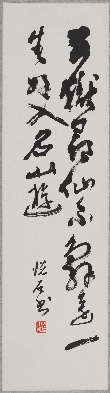 五嶽尋仙不辭遠一
生好入名山遊
書